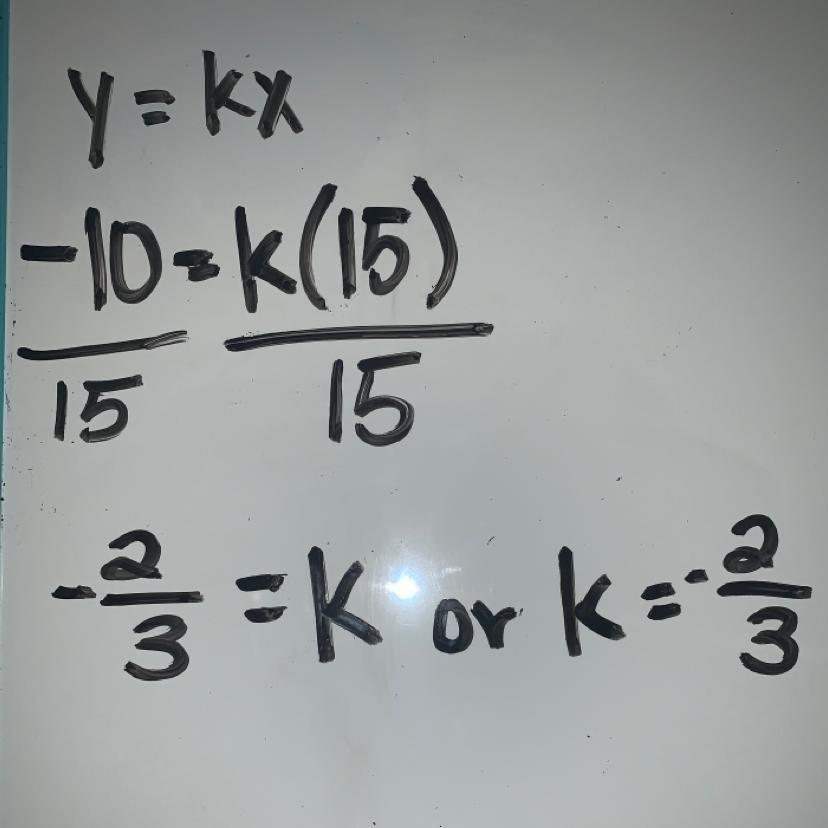 y = kx
-10 = k(15)
15 15
-2/3 = K or k = -2/3